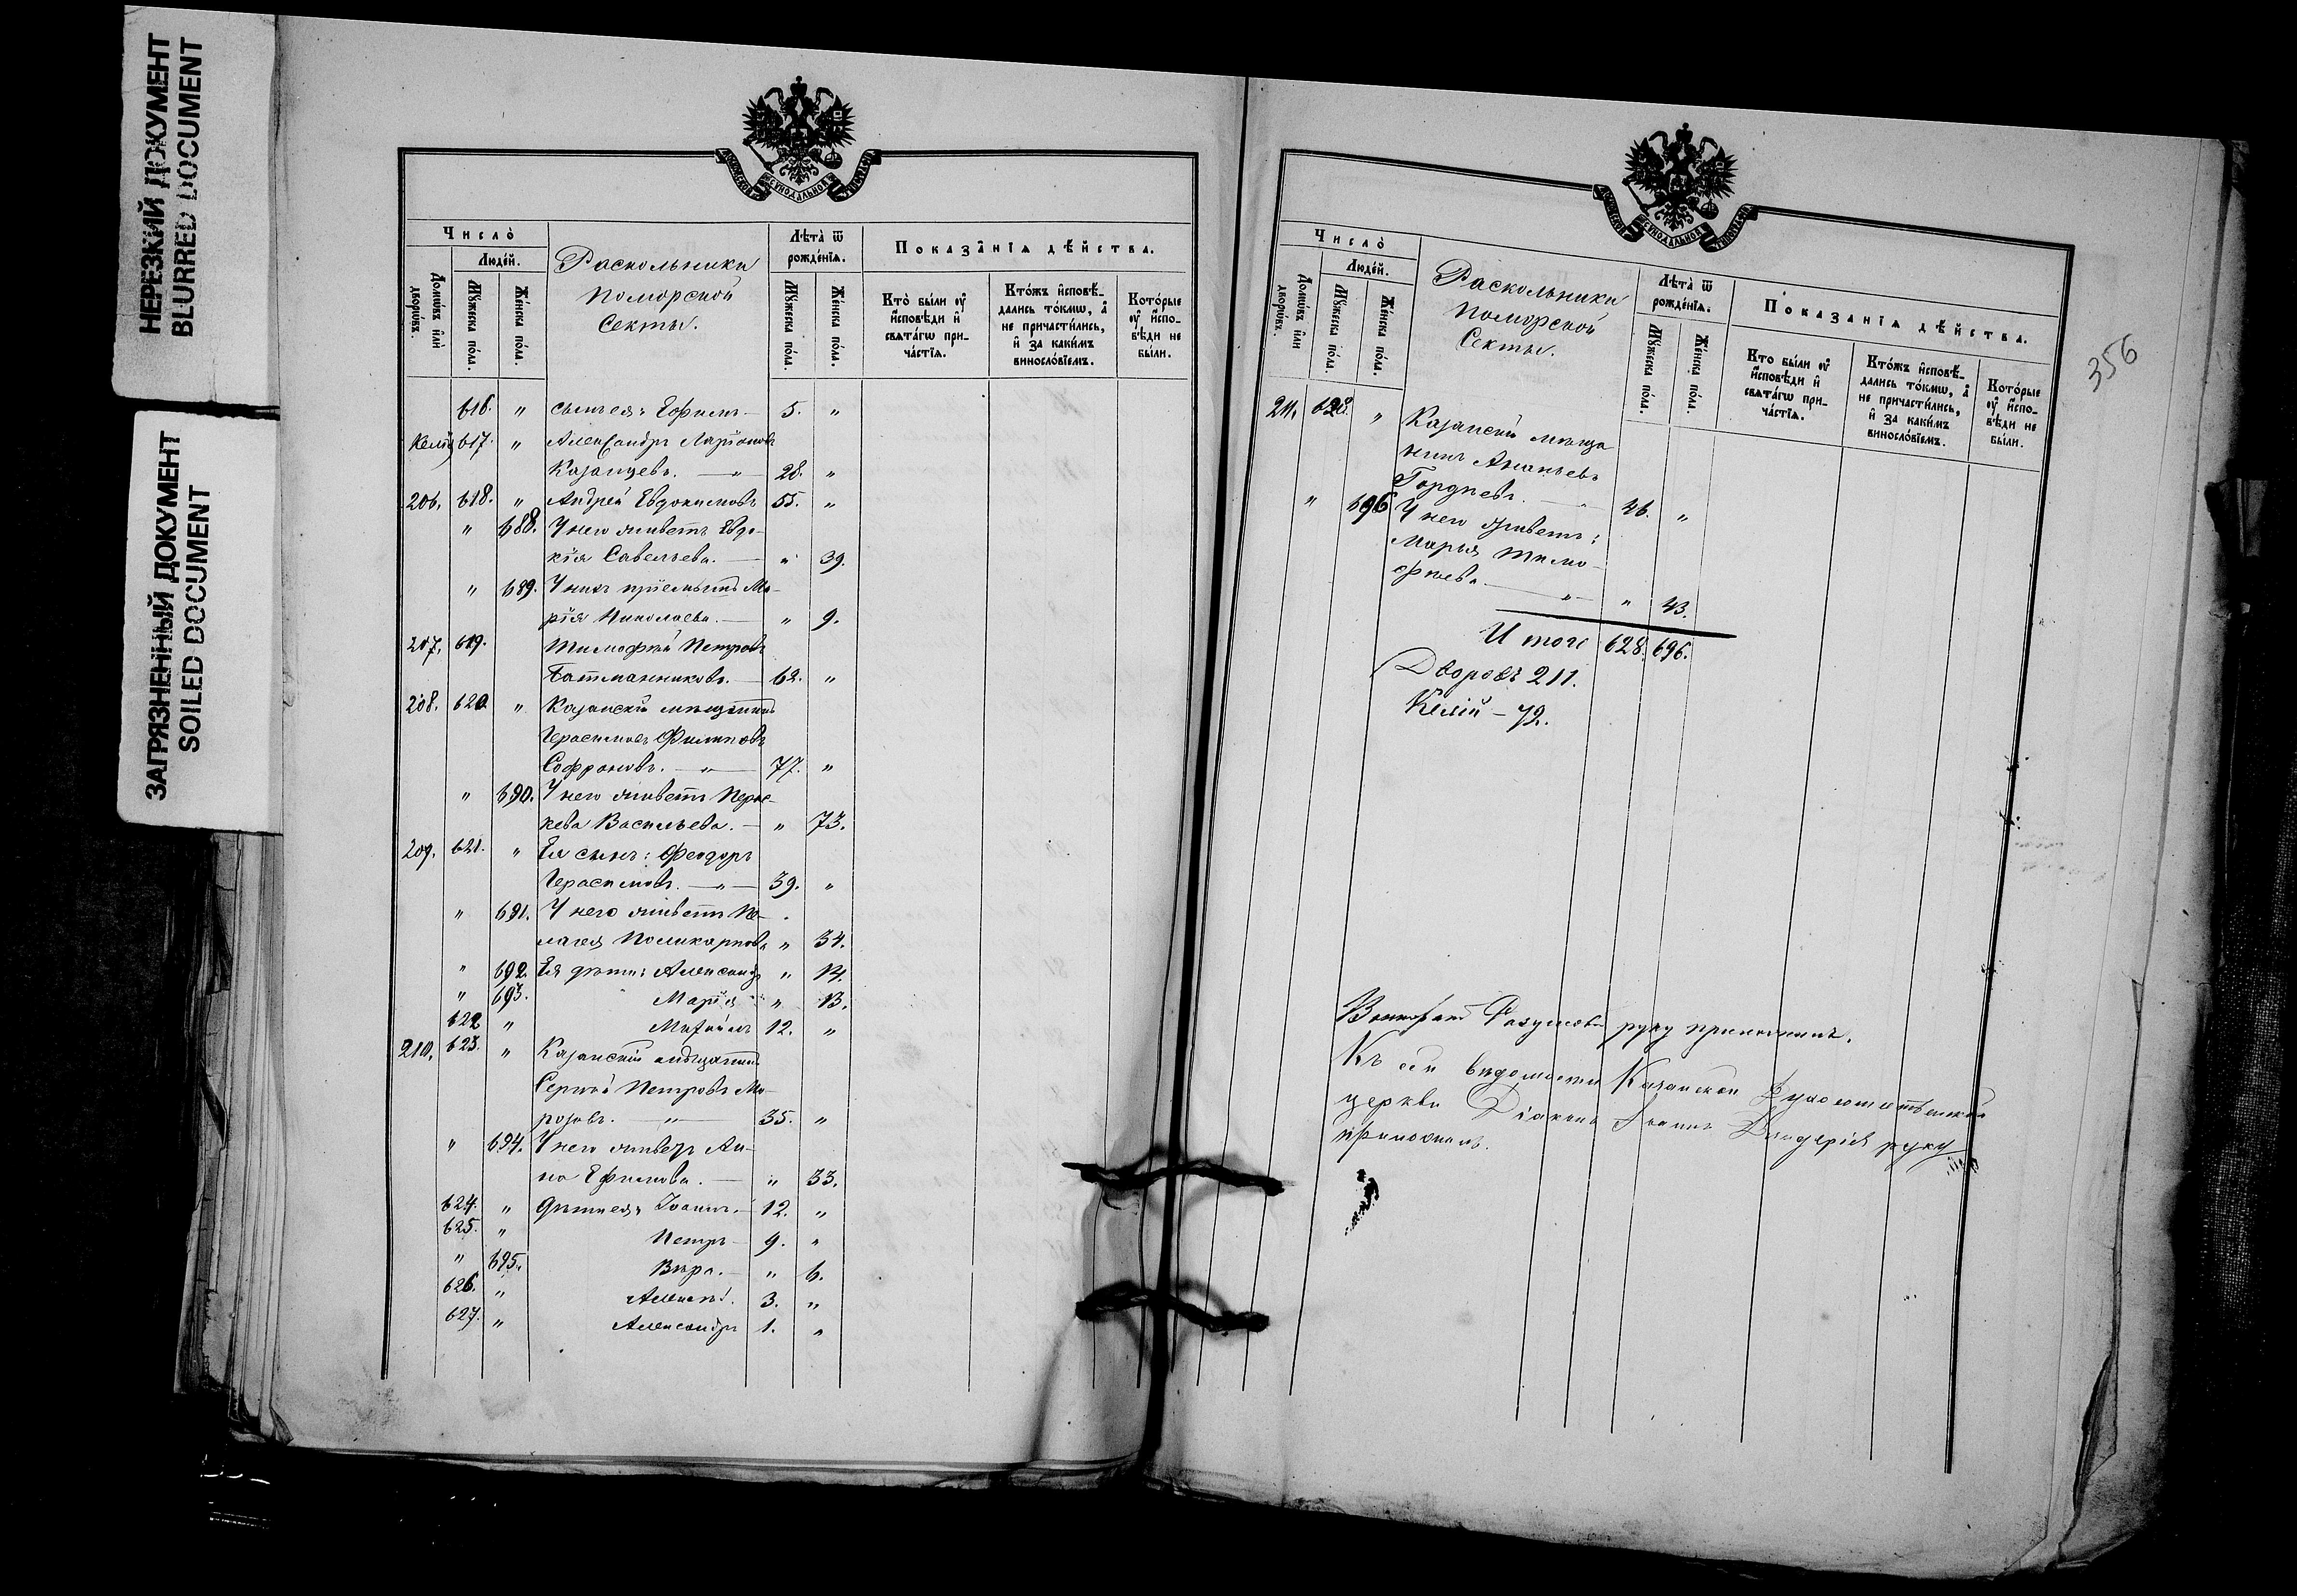 НЕРЕЗКИЙ ДОКУМЕНТ
BLURRED DOCUMENT
ЗАГРЯЗНЕННЫЙ ДОКУМЕНТ
SOILED DOCUMENT
Число̀
Люде́й.
Домѡ́въ и҆лѝ дворѡ́въ.
Мꙋ́жеска по́ла.
Же́нска по́ла.
Раскольники
Поморской
Секты.
Лѣ́та ѿ рожде́нїѧ.
Мꙋ́жеска по́ла.
Же́нска по́ла.
Показа̑нїѧ дѣ́йства.
Кто̀ бы́ли ᲂу҆ и҆сповѣ́ди и҆ свѧта́гѡ прича́стїѧ.
Кто́жъ и҆сповѣ́дались то́кмѡ, а҆ не причасти́лись, и҆ за каки́мъ винослові́емъ.
Кото́рые ᲂу҆ и҆сповѣ́ди не бы́ли.
616. " сынъ ея: Ефимъ — 5. "
Келія 617. " Александръ Ларіоновъ
Казанцевъ. — " — 28. "
206. 618. " Андрей Евдокимовъ 55. "
" 688. У него живетъ Евдо-
кія Савельева. — " 39.
" 689. У нихъ пріемышъ Ма-
рія Николаева. — " 9.
207. 619. Тимофей Петровъ
62. "
208. 620 " Казанскій мѣщанинъ
Герасимъ Филиповъ
Софроновъ. — " — 77. "
" 690. У него живетъ Парас-
кева Васильева. — " 73.
209. 621. " Ея сынъ: Феодоръ
Герасимовъ. — " — 39. "
" 691. У него живетъ Пе-
лагея Поликарпова " 34.
" 692. Ея дѣти: Александр " 14.
" 693. Марія " 13.
622 " Михаилъ 12. "
210. 623. " Казанскій мѣщанинъ
Сергей Петровъ Мо-
розовъ. — " — 35. "
" 694. У него живетъ Ан-
на Ефимова. — " 33.
624. " Дѣти ея: Іоаннъ. — 12. "
625. " Петръ — 9. "
" 695. Вѣра. — " 6.
626. " Алексѣй. 3. "
627. " Александръ 1. "
Число̀
Люде́й.
Домѡ́въ и҆лѝ дворѡ́въ.
Мꙋ́жеска по́ла.
Же́нска по́ла.
Раскольники
Поморской
Секты.
Лѣ́та ѿ рожде́нїѧ.
Мꙋ́жеска по́ла.
Же́нска по́ла.
Показа̑нїѧ дѣ́йства.
Кто̀ бы́ли ᲂу҆ и҆сповѣ́ди и҆ свѧта́гѡ прича́стїѧ.
Кто́жъ и҆сповѣ́дались то́кмѡ, а҆ не причасти́лись, и҆ за каки́мъ винослові́емъ.
Кото́рые ᲂу҆ и҆сповѣ́ди не бы́ли.
356
211. 628. " Казанскій мѣща
нинъ Ананьевъ
Гордѣевъ. — " — 46. "
" 696 У него живетъ:
Марья Тимо-
фѣева — " — " 43.
Итого 628. 696.
Дворовъ 211.
Келій — 72.
руку приложилъ.
Къ сей вѣдомости Казанской
церкви Діаконъ Іоаннъ руку
приложилъ.